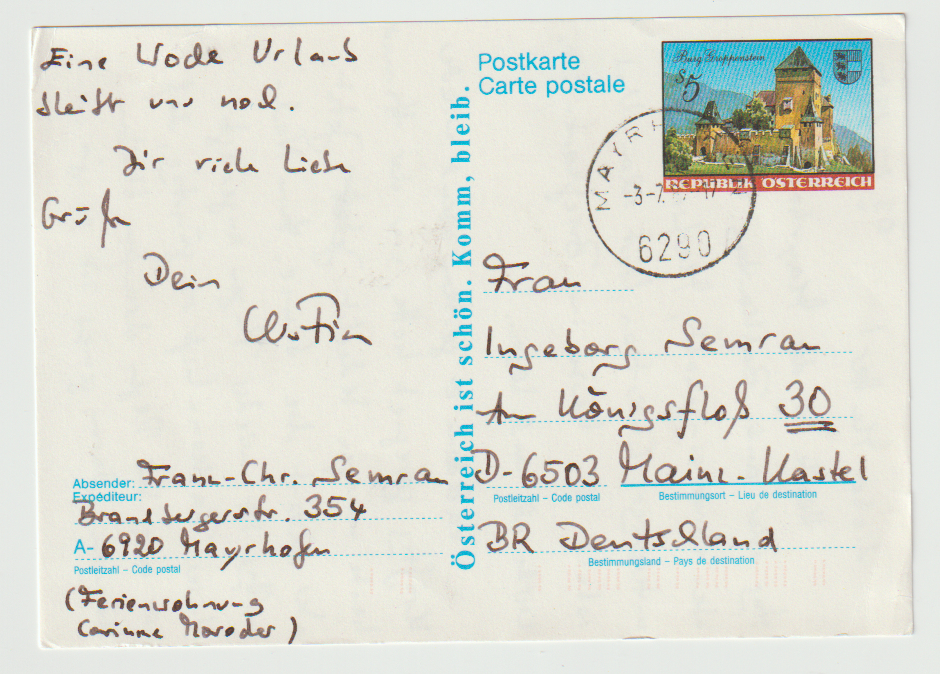 Eine Woche Urlaub
bleibt uns noch.
Dir viele liebe
Grüße
Dein
Absender: Franz-Chr. Semrau
Expéditeur:
Brandbergerstr. 354
A- 6920 Mayrhofen
Postleitzahl – Code postal
(Ferienwohnung
Corinne Moroder)
Österreich ist schön. Komm, bleib.
Postkarte
Carte postale
Burg Groppenstein
S5
REPUBLIK ÖSTERREICH
MAYRH
-3-7.
6290
Frau
Ingeborg Semrau
Am Königsfloß 30
D-6503 Mainz-Kastel
Postleitzahl – Code postal Bestimmungsort – Lieu de destination
BR Deutschland
Bestimmungsland – Pays de destination